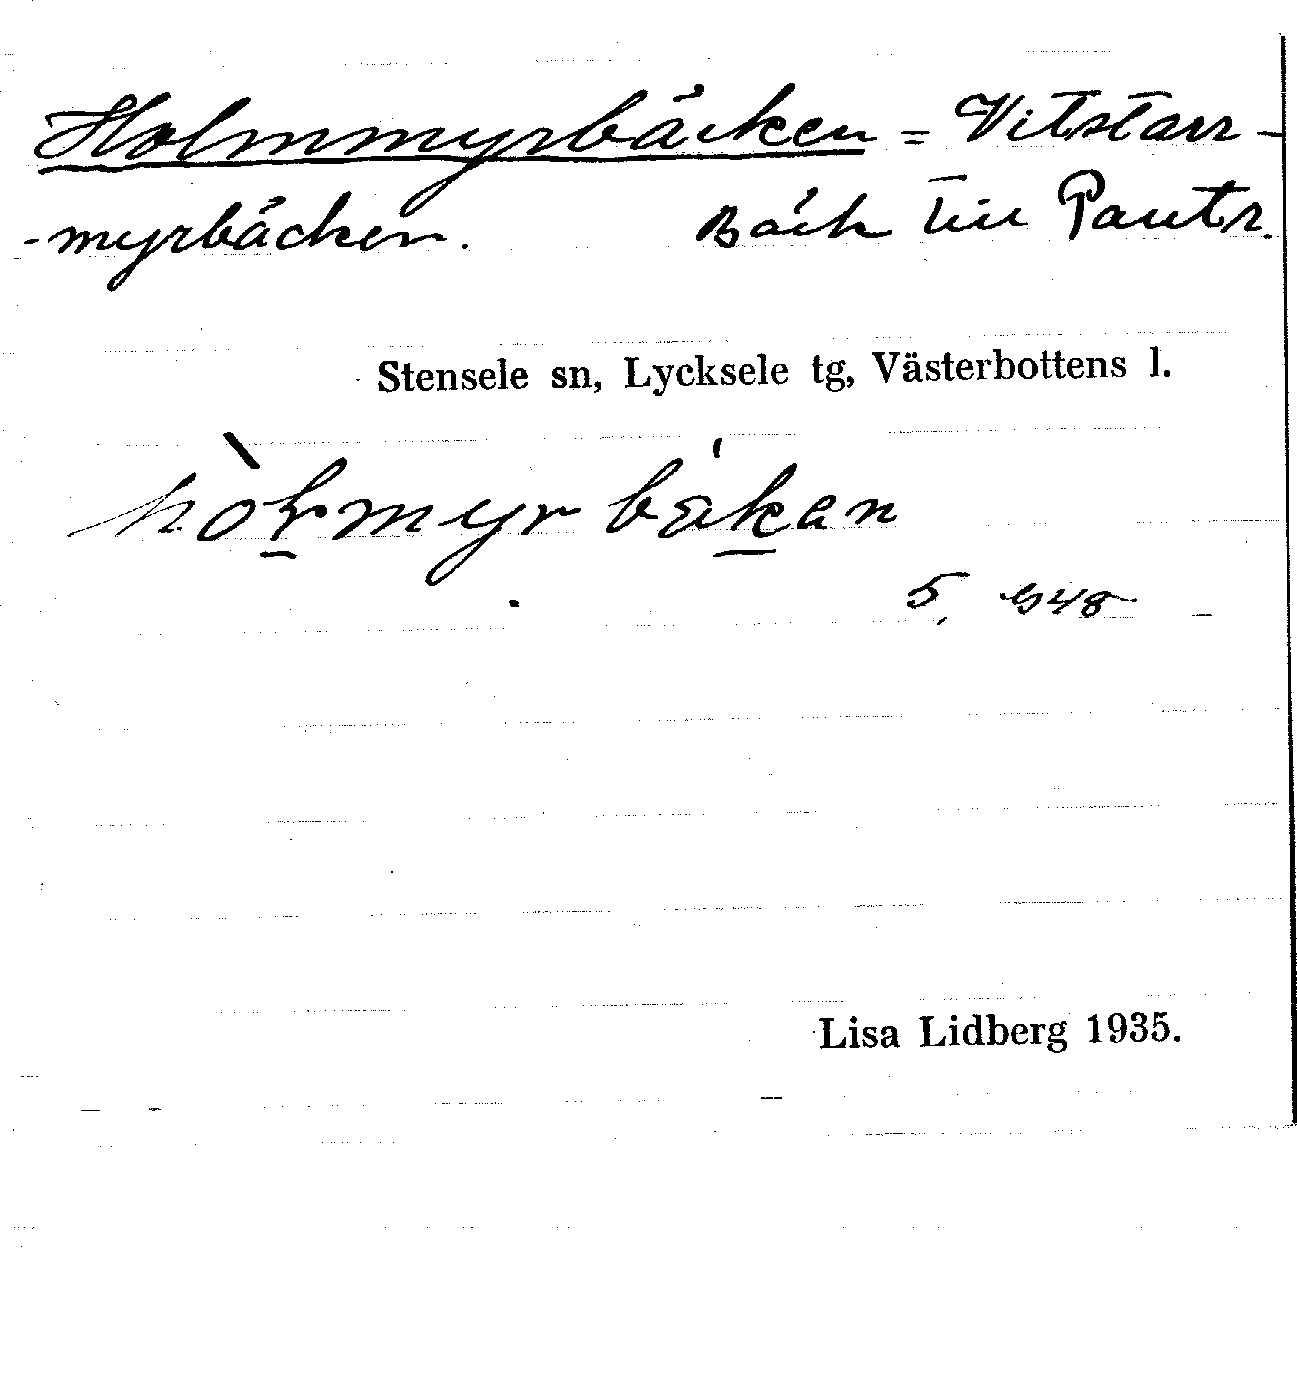 Holmmyrbäcken = Vitstarr-
-myrbäcken. Bäck till Pautr.
Stensele sn, Lycksele tg, Västerbottens l.
hòḻmyrbáḵan
5,
Lisa Lidberg 1935.